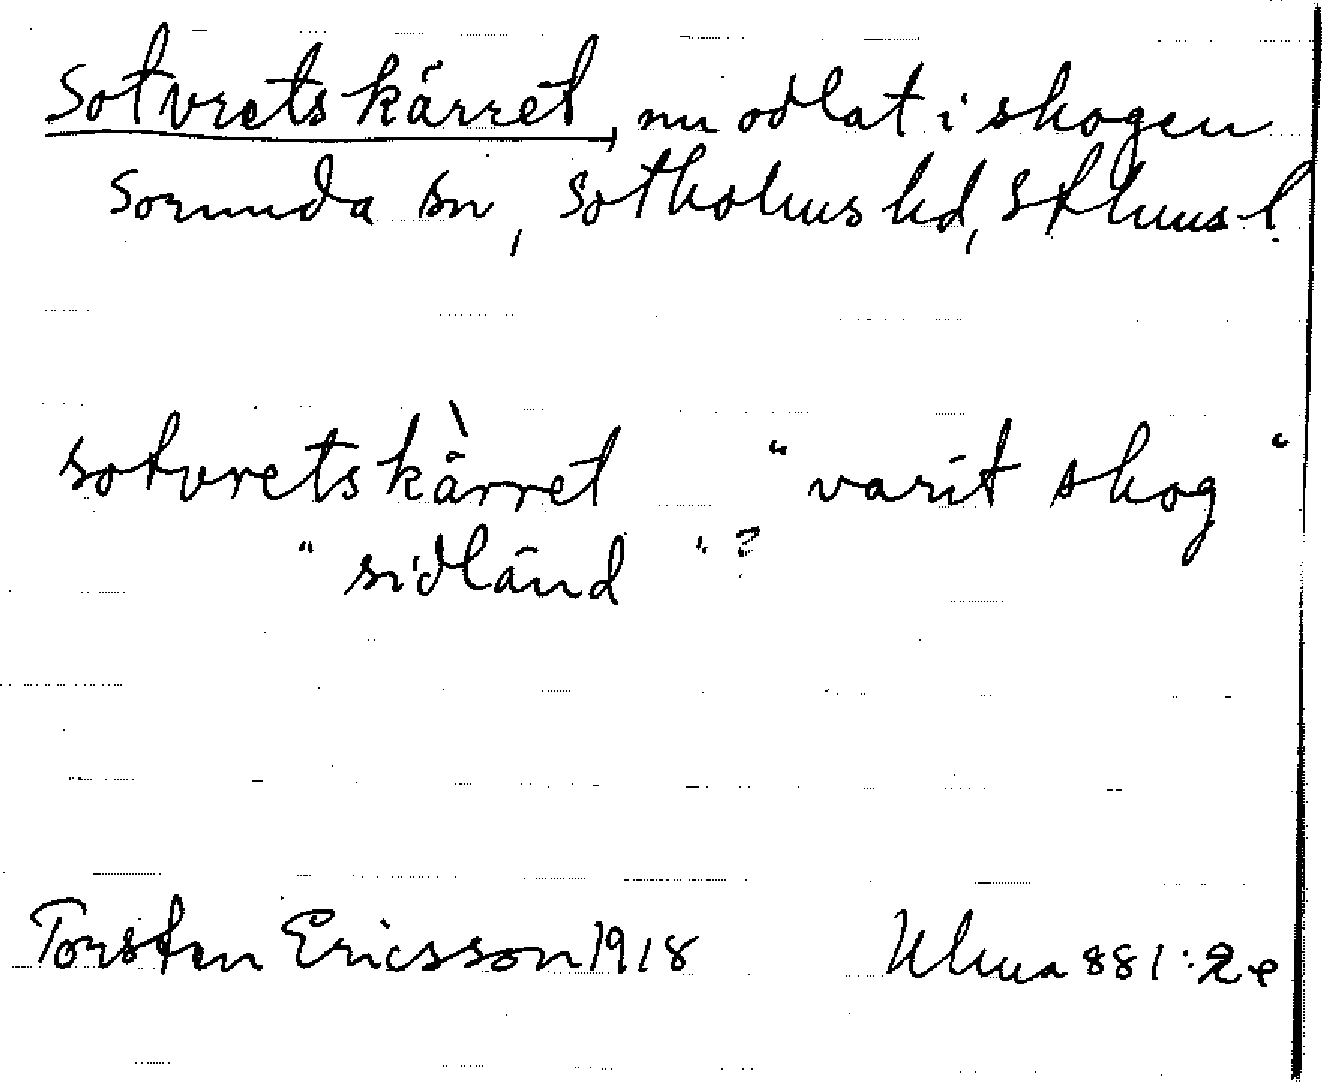 Sotvretskärret, nu odlat i skogen
Sorunda sn, Sotholms hd, Sthlms l.
sotvretskä̀rret "varit skog"
"sidländ"?
Torsten Ericsson 1918 Ulma 881:2e